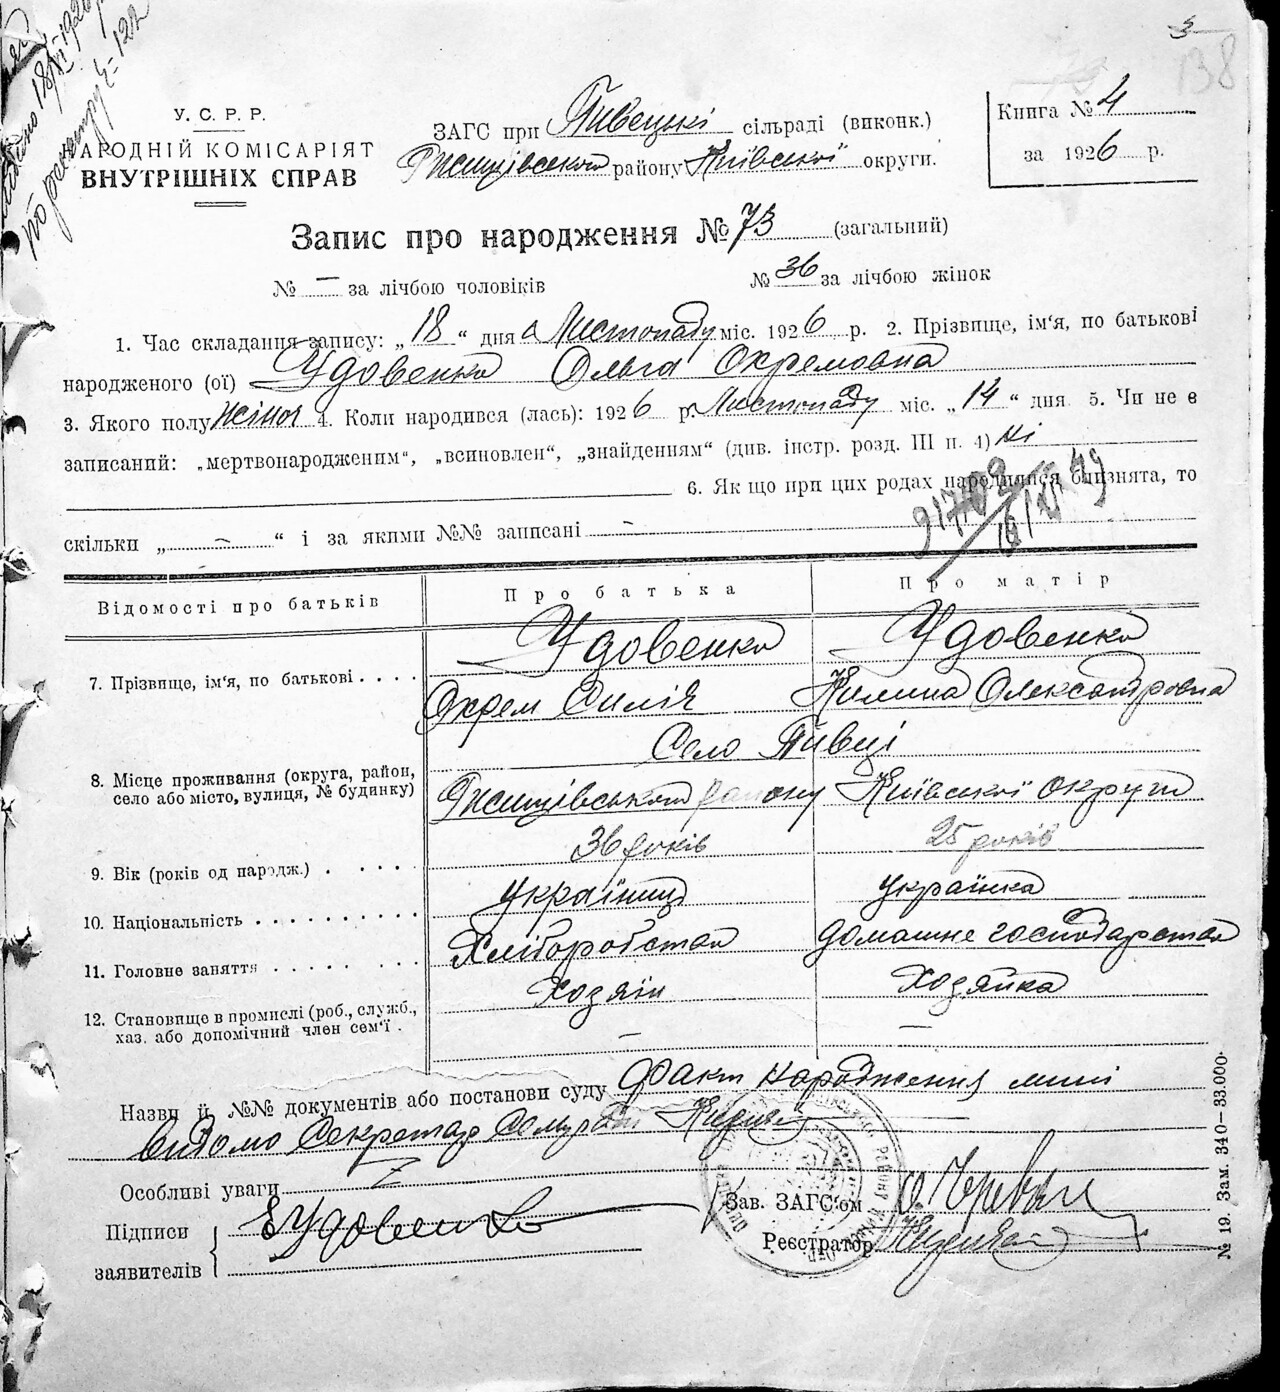 138
У. С. Р. Р.
НАРОДНІЙ КОМІСАРІЯТ
ВНУТРІШНІХ СПРАВ
ЗАГС при Пивецькі сільраді (виконк.)
Ржищівського району Київської округи.
Книга № 4
за 1926 р.
Запис про народження № 73 (загальний)
№ — за лічбою чоловіків № 36 за лічбою жінок
1. Час складання запису: „ 18 “ дня Листопаду міс. 1926 р. 2. Прізвище, ім'я, по батькові
народженого (ої) Удовенко Ольга Охремовна
3. Якого полу жіноч 4. Коли народився (лась): 1926 р. Листопаду міс. „ 14 “ дня 5. Чи не є
записаний: „мертвонародженим“, „всиновлен“, „знайденням“ (див. інстр. розд. III п. 4) ні
6. Як що при цих родах народилися близнята, то
скільки „ — “ і за якими №№ записані —
Відомості про батьків Про батька Про матір
Удовенко Удовенко
7. Прізвище, ім'я, по батькові . . . . Охрем Килина Олександровна
Село Пивці
8. Місце проживання (округа, район,
село або місто, вулиця, № будинку) Ржищівського району Київської округи
9. Вік (років од народж.) . . . . . 36 років 25 років
10. Національність . . . . . . . . . . українець українка
11. Головне заняття . . . . . . . . Хліборобство домашнє господарство
Хозяїн Хозяйка
12. Становище в промислі (роб., служб.,
хаз. або допомічний член сем'ї . — —
Назви й №№ документів або постанови суду Факт народження мині
відомо Секретар
Особливі уваги
Підписи ЕУдовенко
заявителів
Зав. ЗАГС'ом
Реєстратор
№ 19. Зам. 340—33.000.